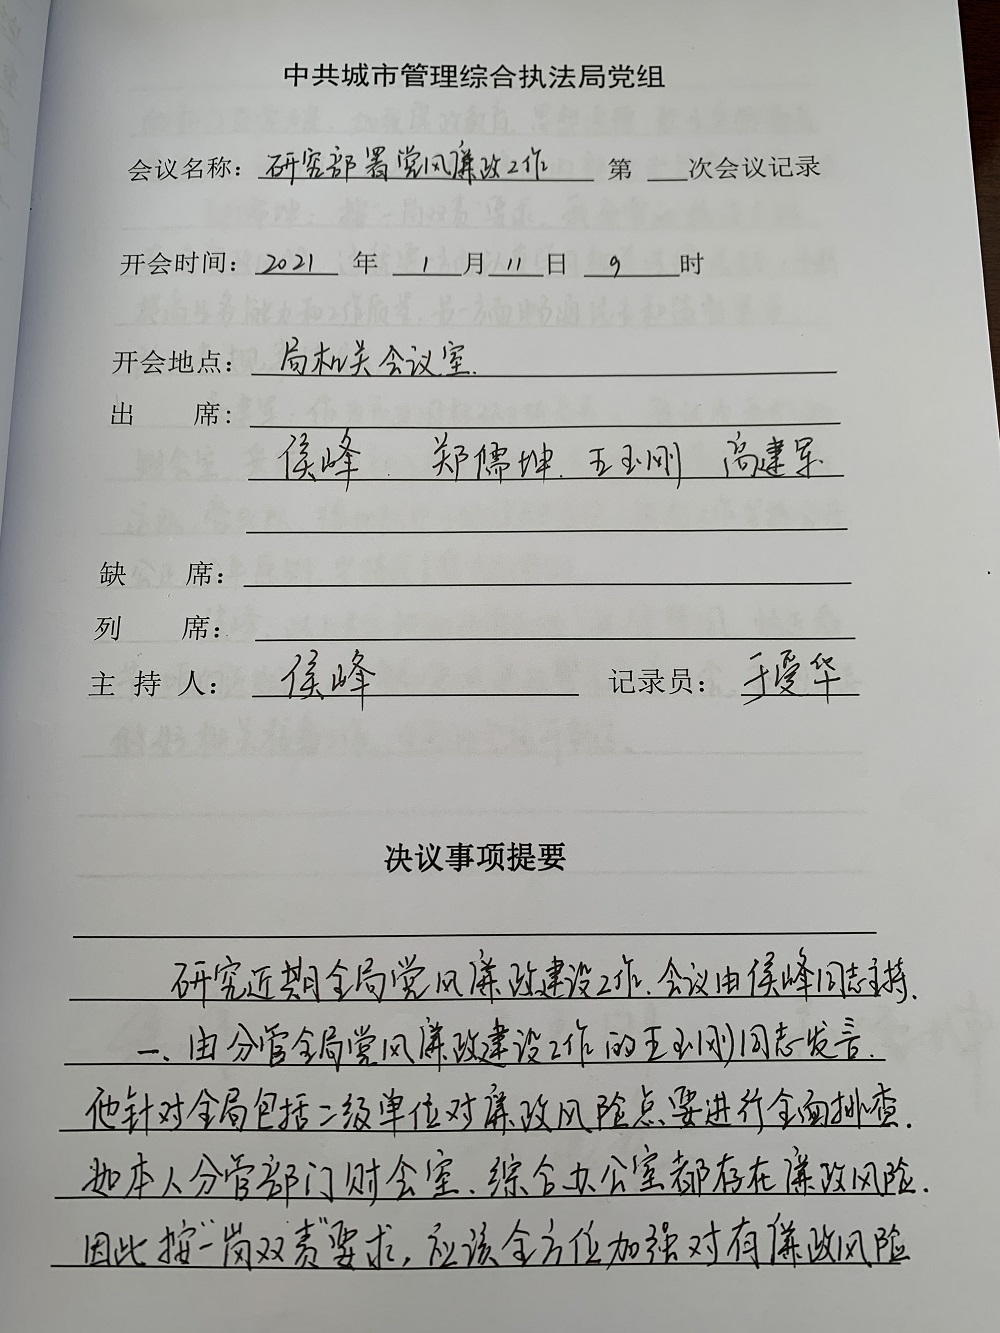 中共城市管理综合执法局党组
会议名称：研究部署党风廉政工作 第 次会议记录
开会时间：2021 年 1 月 11 日 9 时
开会地点：局机关会议室
出 席：
侯峰 郑儒坤 王玉刚 高建军
缺 席：
列 席：
主 持 人：侯峰 记录员：华
决议事项提要
研究近期全局党风廉政建设工作.会议由侯峰同志主持.
一、由分管全局党风廉政建设工作的王玉刚同志发言.
他针对全局包括二级单位对廉政风险点要进行全面排查.
如本人分管部门财会室、综合办公室都存在廉政风险.
因此按一岗双责要求,应该全方位加强对有廉政风险